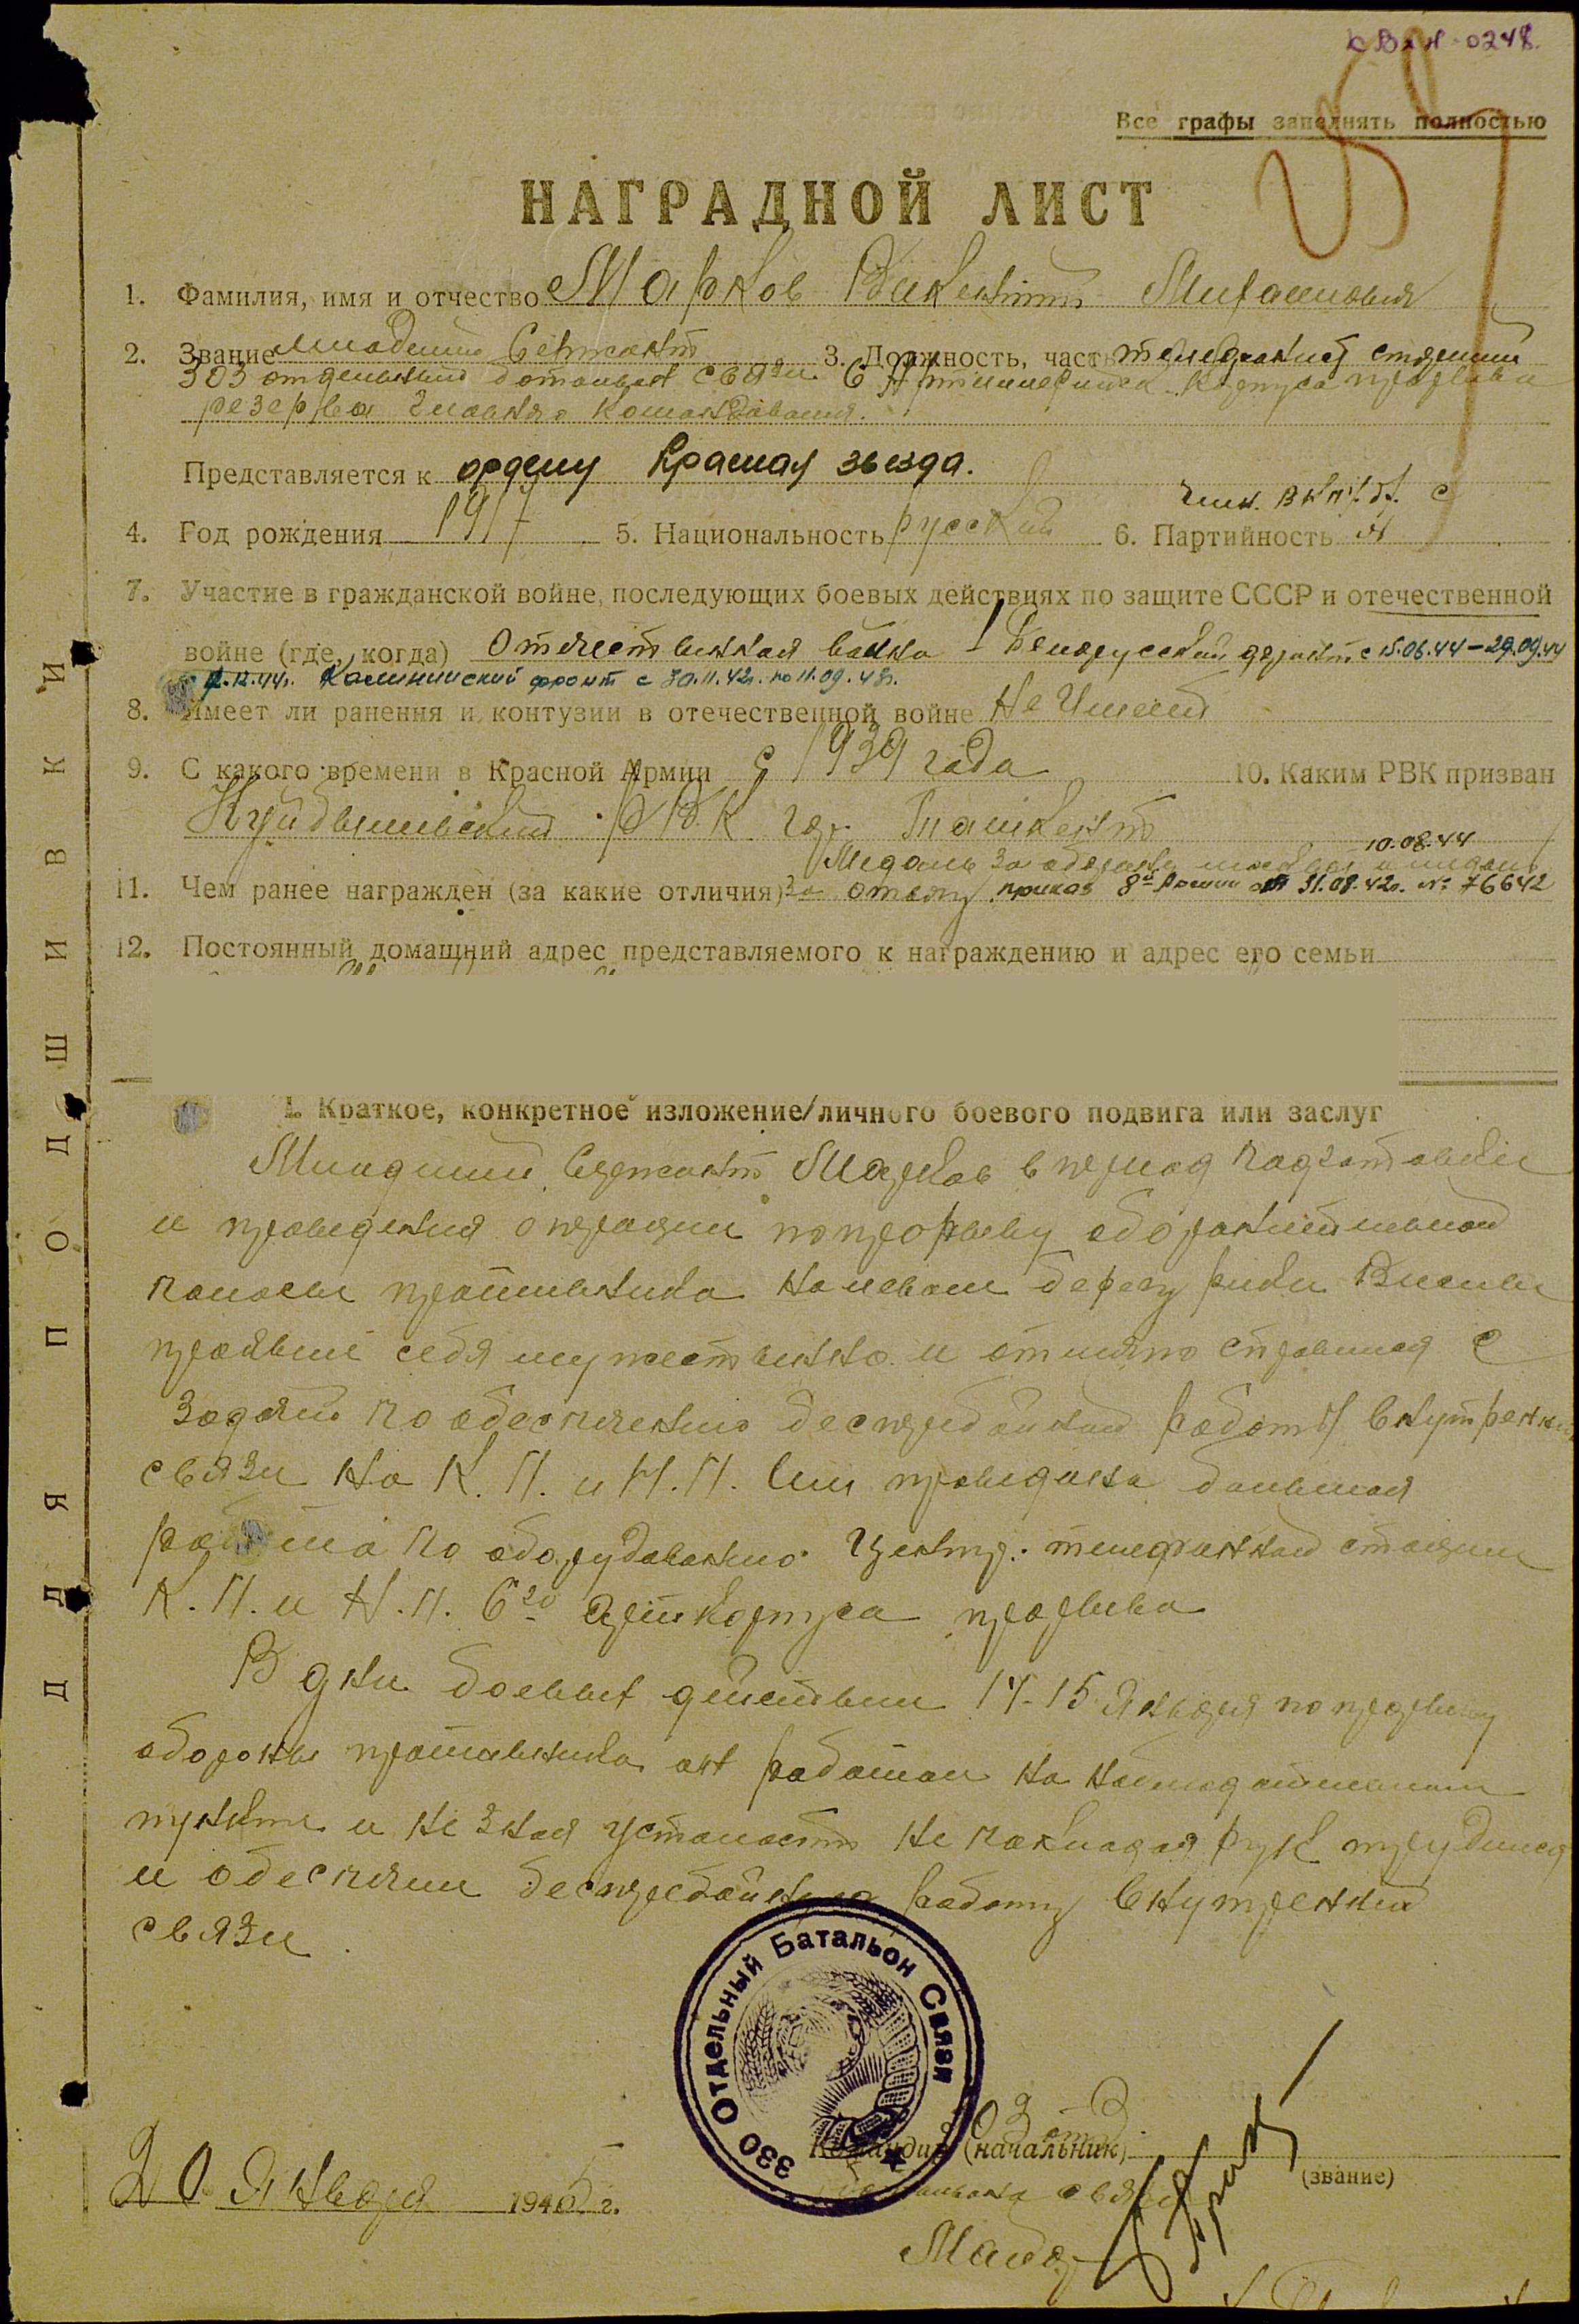 0248.
Все графы заполнять полностью
НАГРАДНОЙ ЛИСТ
1. Фамилия, имя и отчество Марков Викентий Михайлович
2. Звание младший Сержант 3. Должность, часть телефонист станции
303 отдельный батальон связи 6 Артиллерийск. Корпуса прорыва
резерва главного Командования.
Представляется к ордену Красная звезда.
член ВКП/б/. с
4. Год рождения 1917 5. Национальность русский 6. Партийность
7. Участие в гражданской войне, последующих боевых действиях по защите СССР и отечественной
войне (где, когда) Отечественная война 1 Белорусский фронт с 15.06.44 – 29.09.44
12.44г. Калининский фронт с 30.11.42г. по 11.09.43г.
8. Имеет ли ранения и контузии в отечественной войне Не Имеет
9. С какого времени в Красной Армии с 1939 года 10. Каким РВК призван
Куйбышевский РВК гор. Ташкент
10.08.44
Медаль За оборону москвы и медаль
11. Чем ранее награжден (за какие отличия) За отвагу приказ 8й Армии от 31.08.42г. № 76642
12. Постоянный домашний адрес представляемого к награждению и адрес его семьи
I. Краткое, конкретное изложение личного боевого подвига или заслуг
Младший Сержант Марков в период подготовки
и проведения операции по прорыву оборонительной
полосы противника на левом берегу реки Вислы
проявил себя мужественно и отлично справился с
задачей по обеспечению бесперебойной работы внутренней
связи на К.П. и Н.П. Им проведена большая
работа по оборудованию центр. телефонной станции
К.П. и Н.П. 6го Арткорпуса прорыва
В дни боевых действии 14-15 Января по прорыву
обороны противника он работал на наблюдательном
пункте и не зная усталости не покладая рук трудился
и обеспечил бесперебойную работу внутренней
связи.
330 Отдельный Батальон Связи
303 отд.
Командир (начальник)
(звание)
батальона связи
20 Января 1945 г.
Майор
ДЛЯ ПОДШИВКИ